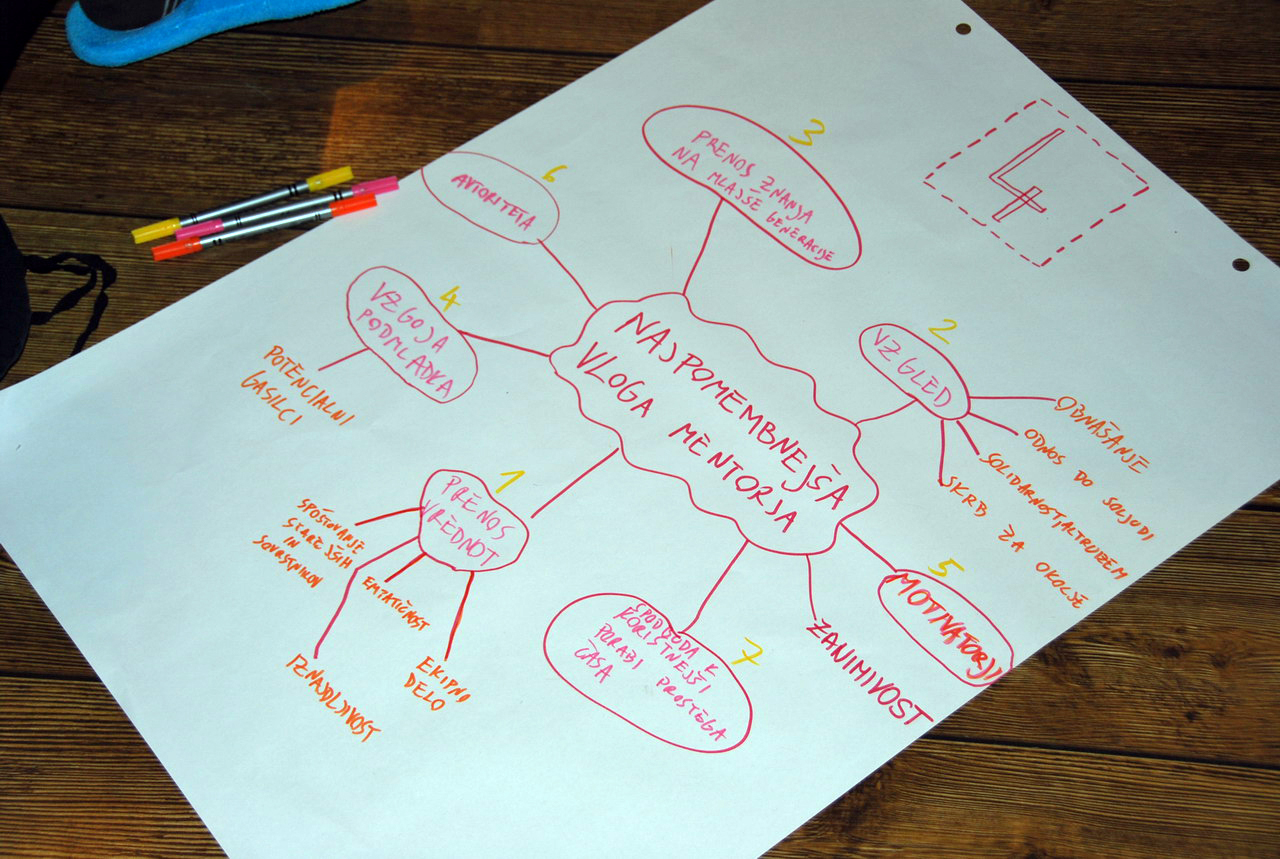 4
NAJPOMEMBNEJŠA
VLOGA MENTORJA
1
PRENOS
VREDNOT
SPOŠTOVANJE
STAREJŠIH
IN
SOVRSTNIKOV
IZNAJDLJIVOST
EMPATIČNOST
EKIPNO
DELO
2
VZGLED
OBNAŠANJE
ODNOS DO SOLJUDI
SOLIDARNOST, ALTRUIZEM
SKRB ZA OKOLJE
3
PRENOS ZNANJA
NA MLAJŠE GENERACIJE
4
VZGOJA
PODMLADKA
POTENCIALNI
GASILCI
5
MOTIVATORJI
6
AVTORITETA
7
K
KORISTNEJŠI
PORABI PROSTEGA
ČASA
ZANIMIVOST